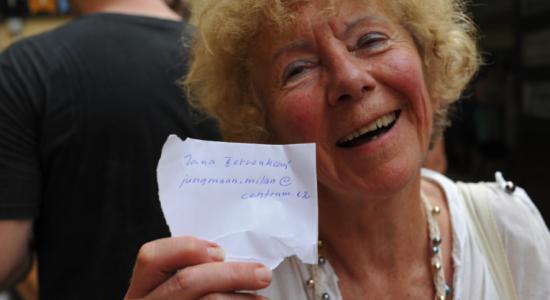 Jana Červenková
jungmann.milan@
centrum.cz